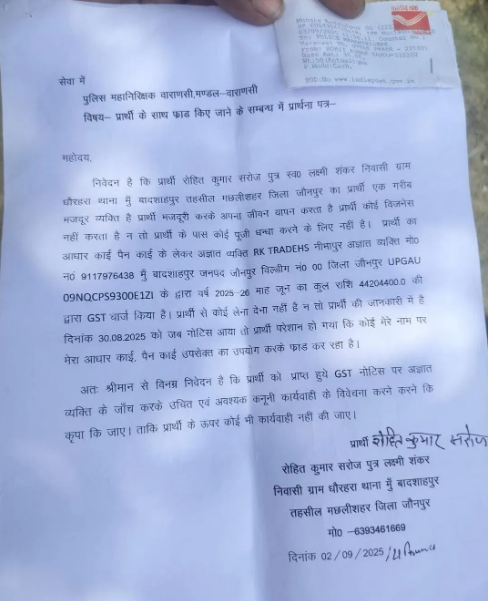 सेवा में
पुलिस महानिरिक्षक वाराणसी,मण्डल–वाराणसी
विषय– प्रार्थी के साथ फाड किए जाने के सम्बन्ध में प्रार्थना पत्र–
महोदय,
निवेदन है कि प्रार्थी रोहित कुमार सरोज पुत्र स्व0 लक्ष्मी शंकर निवासी ग्राम
धौरहरा थाना मुँ बादशाहपुर तहसील मछलीशहर जिला जौनपुर का प्रार्थी एक गरीब
मजदूर व्यक्ति है प्रार्थी मजदूरी करके अपना जीवन यापन करता है प्रार्थी कोई बिजनेस
नहीं करता है न तो प्रार्थी के पास कोई पूजी धन्धा करने के लिए नहीं है। प्रार्थी का
आधार कार्ड पैन कार्ड के लेकर अज्ञात व्यक्ति RK TRADEHS नीभापुर अज्ञात व्यक्ति मो0
न0 9117976438 मुँ बादशाहपुर जनपद जौनपुर विल्डींग नं0 00 जिला जौनपुर UPGAU
09NQCPS9300E1ZI के द्वारा वर्ष 2025–26 माह जून का कुल राशि 44204400.0 की
द्वारा GST चार्ज किया है। प्रार्थी से कोई लेना देना नहीं है न तो प्रार्थी की जानकारी में है
दिनांक 30.08.2025 को जब नोटिस आया तो प्रार्थी परेशान हो गया कि कोई मेरे नाम पर
मेरा आधार कार्ड, पैन कार्ड उपरोक्त का उपयोग करके फाड कर रहा है।
अतः श्रीमान से विनम्र निवेदन है कि प्रार्थी को प्राप्त हुये GST नोटिस पर अज्ञात
व्यक्ति के जाँच करके उचित एवं अवश्यक कनूनी कार्यवाही के विवेचना करने करने कि
कृपा कि जाए। ताकि प्रार्थी के ऊपर कोई भी कार्यवाही नही की जाए।
प्रार्थी रोहित कुमार सरोज
रोहित कुमार सरोज पुत्र लक्ष्मी शंकर
निवासी ग्राम धौरहरा थाना मुँ बादशाहपुर
तहसील मछलीशहर जिला जौनपुर
मो0 –6393461669
दिनांक 02/09/2025